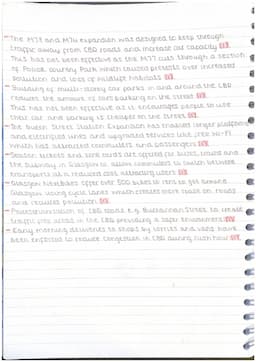 - The M77 and M74 expansion was designed to keep through
traffic away from CBD roads and increase car capacity
This has not been effective as the M77 cuts through a section
of Pollok Country Park which caused protests over increased
pollution and loss of wildlife habitats
- Building of multi-storey car parks in and around the CBD
reduces the amount of cars parking on the street
This has not been effective as it encourages people to use
their car and parking is cheaper on the street
- The Queen Street Station Expansion has enabled longer platforms
and electrified lines and upgraded services like free Wi-Fi
which has attracted commuters and passengers
- Season tickets and zone cards are offered for buses, trains and
the subway in Glasgow to allow commuters to switch between
transports at a reduced cost attracting users
- Glasgow Nextbikes offer over 500 bikes to rent to get around
Glasgow using cycle lanes which creates more room on roads
and reduces pollution
- Pedestrianisation of CBD roads e.g. Buchanan Street to create
traffic free areas in the CBD providing a safer environment
- Early morning deliveries to shops by lorries and vans have
been enforced to reduce congestion in CBD during rush hour